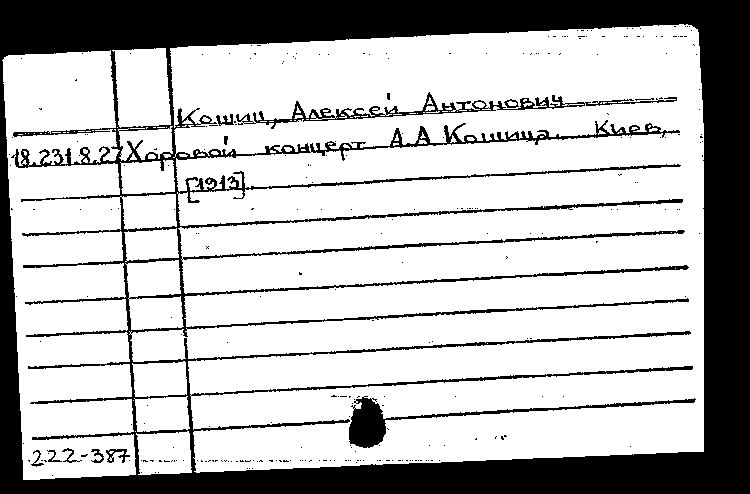 Кошиц, Алексей Антонович
18.231.8.27 Хоровой концерт А.А Кошица. Киев,
[1913].
222-387